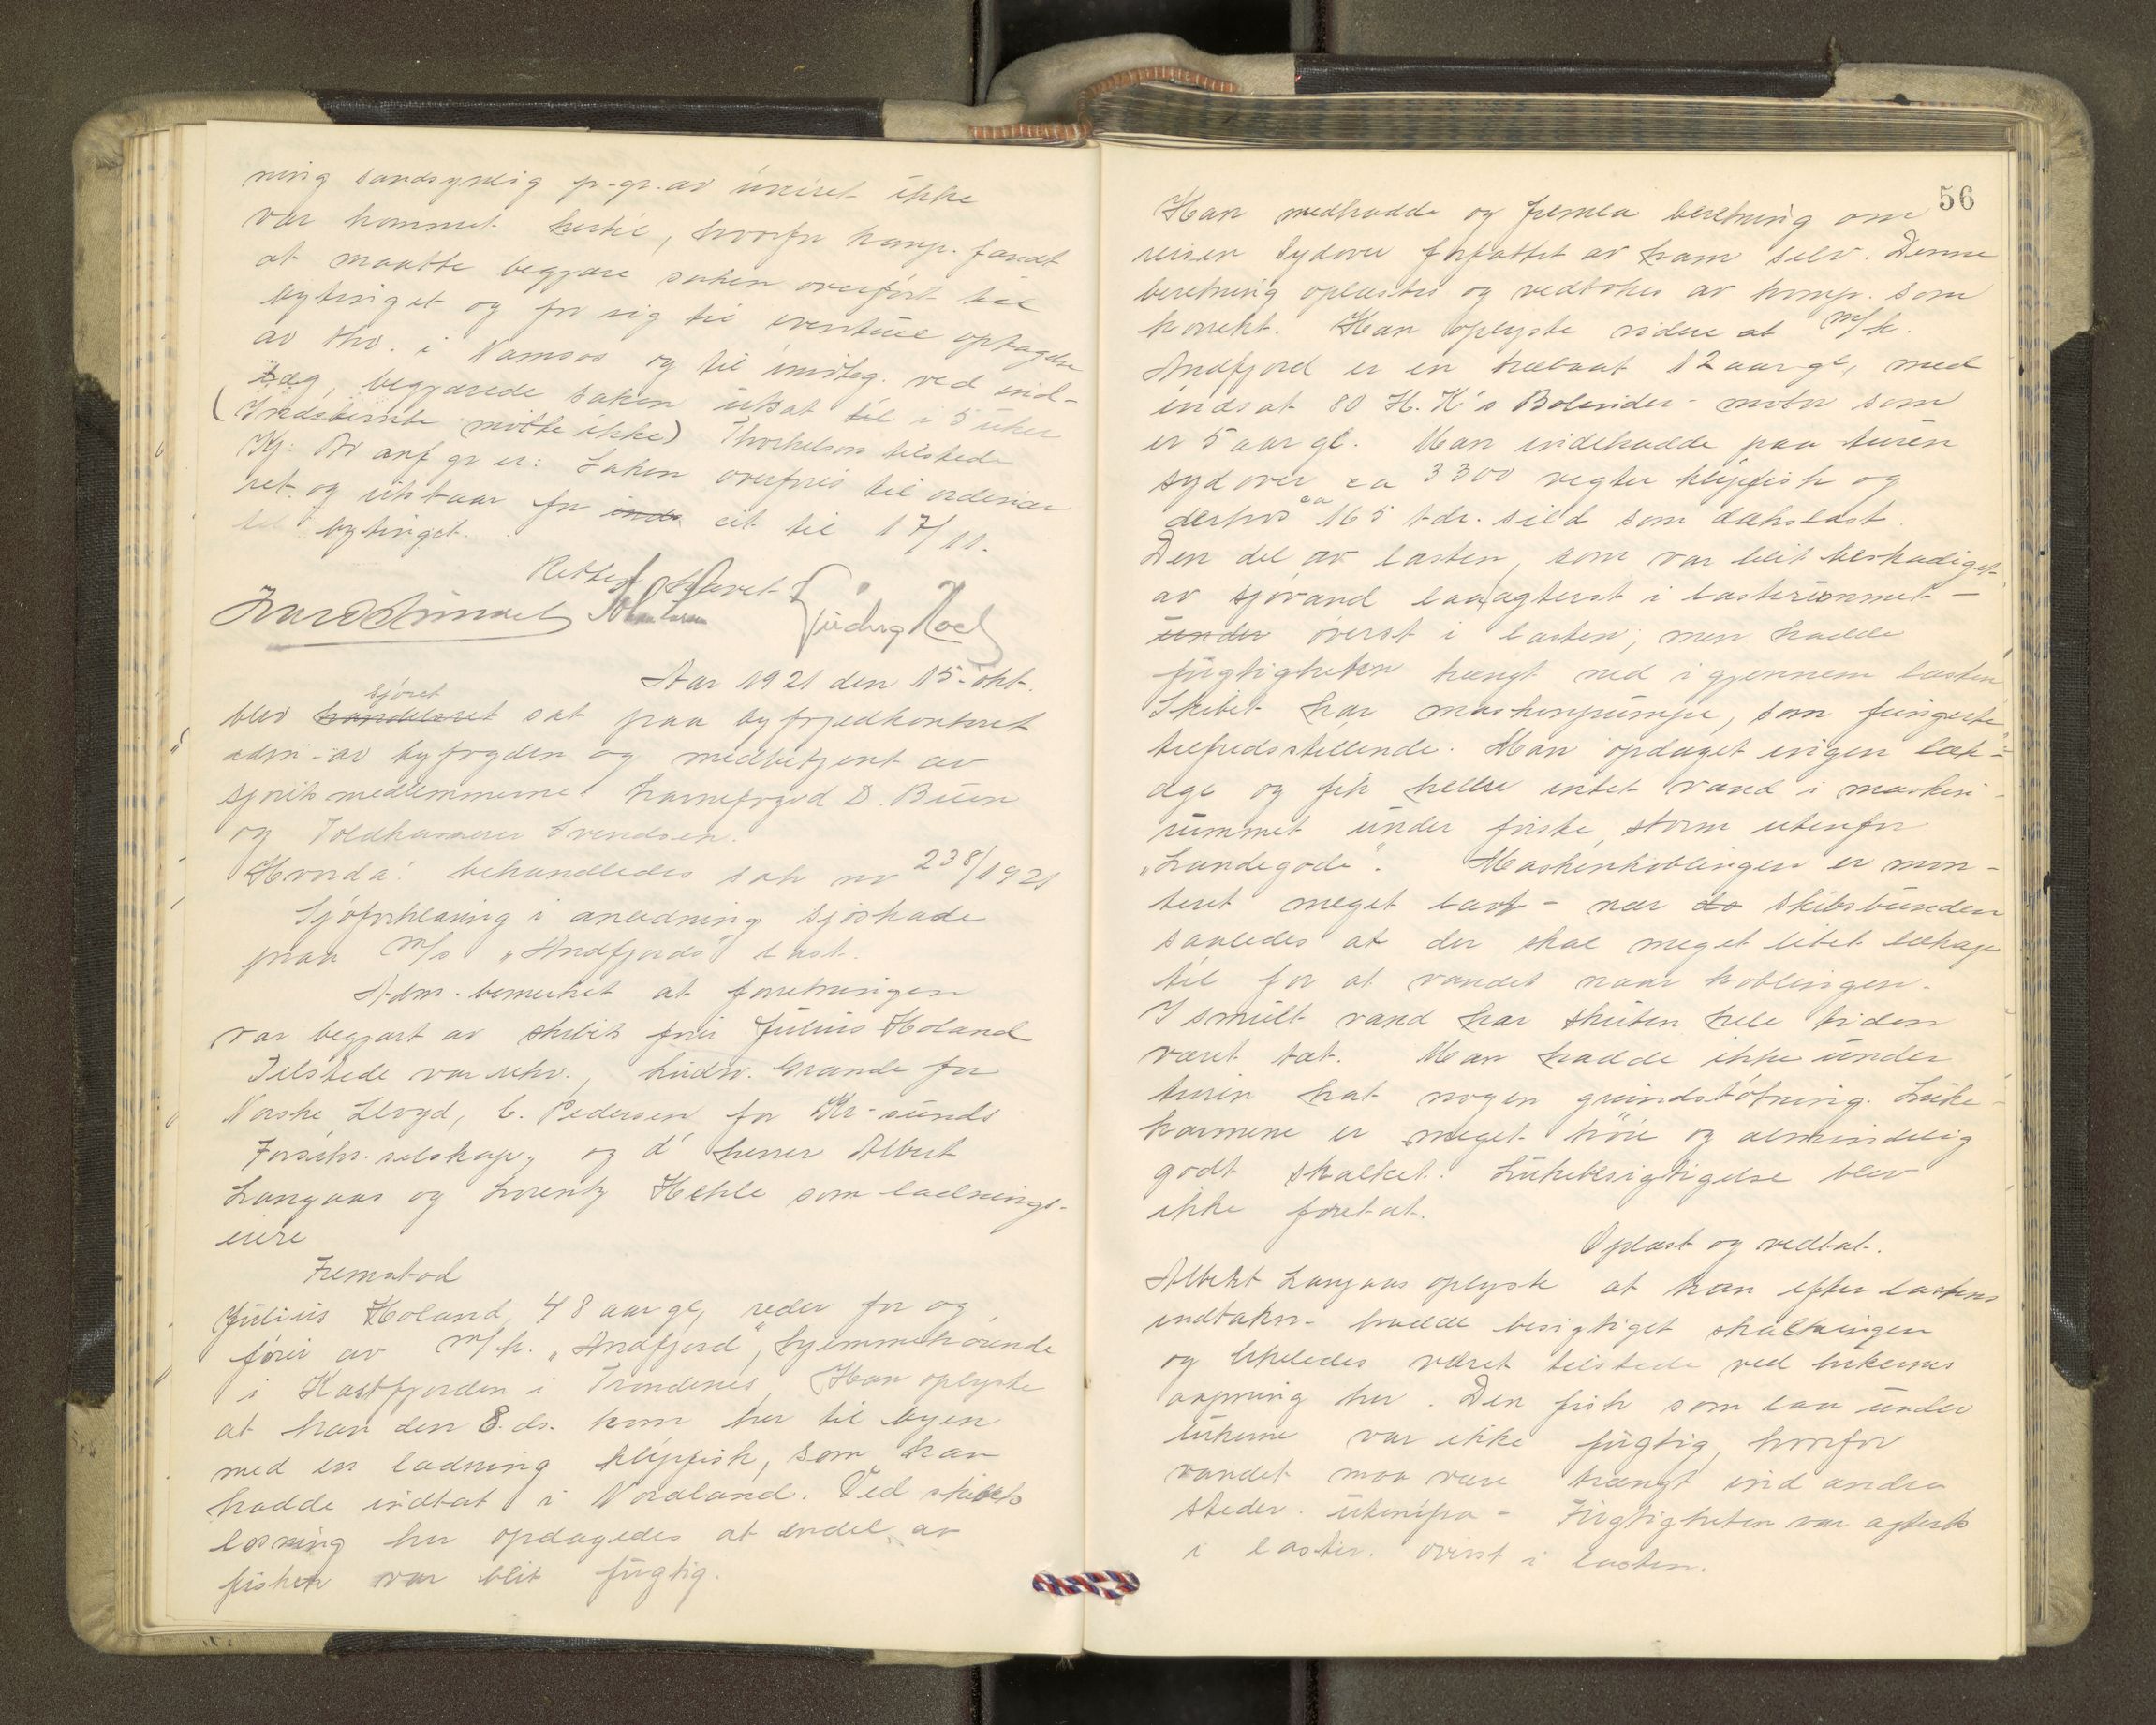 ning sandsynlig p.gr.av uveiret ikke
var kommet hertil, hvorfor komp. fandt
at maatte begjære saken overført til
bytinget og for sig til eventuel optagelse
av thv. i Namsos og til imøteg. ved ind-
læg, begjærede saken utsat til i 5 uker
(Indstevnte møtte ikke) Thorkelson tilstede
Kj: Av anf gr er: Saken overføres til ordinær
ret og utstaar for cit til 17/11.
til bytinget.
Retten hævet
Aar 1921 den 15. okt.
sjøret
blev handelsret sat paa byfogedkontoret
adm. av byfogden og medbetjent av
sjøretsmedlemmerne havnefoged D. Buen
og Toldkasserer Svendsen.
Hvorda: behandledes sak nr 238/1921
Sjøforklaring i anledning sjøskade
paa m/s "Andfjords" last.
Adm. bemerket at forretningen
var begjært av skibets fører Julius Holand
Tilstede var rhv., Ludv. Grande for
Norske Lloyd, C. Pedersen for Kr-sunds
Forsikr. selskap, og d' herrer Albert
Langaas og Lorentz Hehle som ladnings-
eiere
Fremstod
Julius Holand, 48 aar gl, reder for og
fører av m/k. "Andfjord", hjemmehørende
i Kastfjorden i Trondenes. Han oplyste
at han den 8. ds. kom her til byen
med en ladning klipfisk, som han
hadde indtat i Nordland. Ved skibets
losning her opdagedes at endel av
fisken var blit fugtig.
56
Han medhadde og fremla beretning om
reisen sydover forfattet av ham selv. Denne
beretning oplæstes og vedtokes av komp. som
korrekt. Han oplyste videre at m/k.
Andfjord er en træbaat 12 aar gl, med
indsat 80 H.K's Bolinder-motor som
er 5 aar gl. Man indehadde paa turen
sydover ca 3300 vegter klipfisk og
derhos ca 165 tdr. sild som dækslast.
Den del av lasten, som var blit beskadiget
av sjøvand laa agterst i lasterummet -
under øverst i lasten, men hadde
fugtigheten trængt ned igjennem lasten
Skibet har maskinpumpe, som fungerte
tilfredsstillende. Man opdaget ingen læk-
age og fik heller intet vand i maskin-
rummet under første storm utenfor
"Landegode". Maskinkoblingen er mon-
teret meget lavt - nær skibsbunden
saaledes at der skal meget litet lækage
til for at vandet naar koblingen.
I smult vand har skuten hele tiden
været tæt. Man hadde ikke under
turen hat nogen grundstøtning. Luke-
karmene er meget høie og almindelig
godt skalket. Lukebesigtigelse blev
ikke foretat.
Oplæst og vedtat.
Albert Langaas oplyste at han efter lastens
indtakn. hadde besigtiget skalkningen
og likeledes været tilstede ved lukernes
aapning her. Den fisk som laa under
lukerne var ikke fugtig, hvorfor
vandet maa være trængt ind andre
steder utenifra - Fugtigheten var agterst
i laster. øverst i lasten.